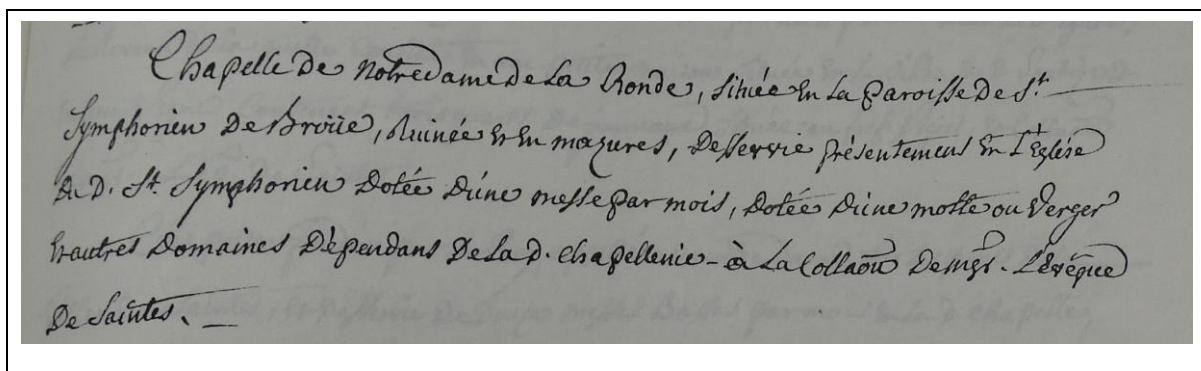 Chapelle De Notre dame De La Ronde, située En La Paroisse De St.
Symphorien De Broüe, Ruinée Et En mazures, Desservie présentement En L'Eglise
Du D. St. Symphorien Dotée D'une messe par mois, Dotée D'une motte ou Verger
Et autres Domaines Dépendans De La d. Chapellenie - à La Collaõn De mgr. L'Evêque
De Saintes. _